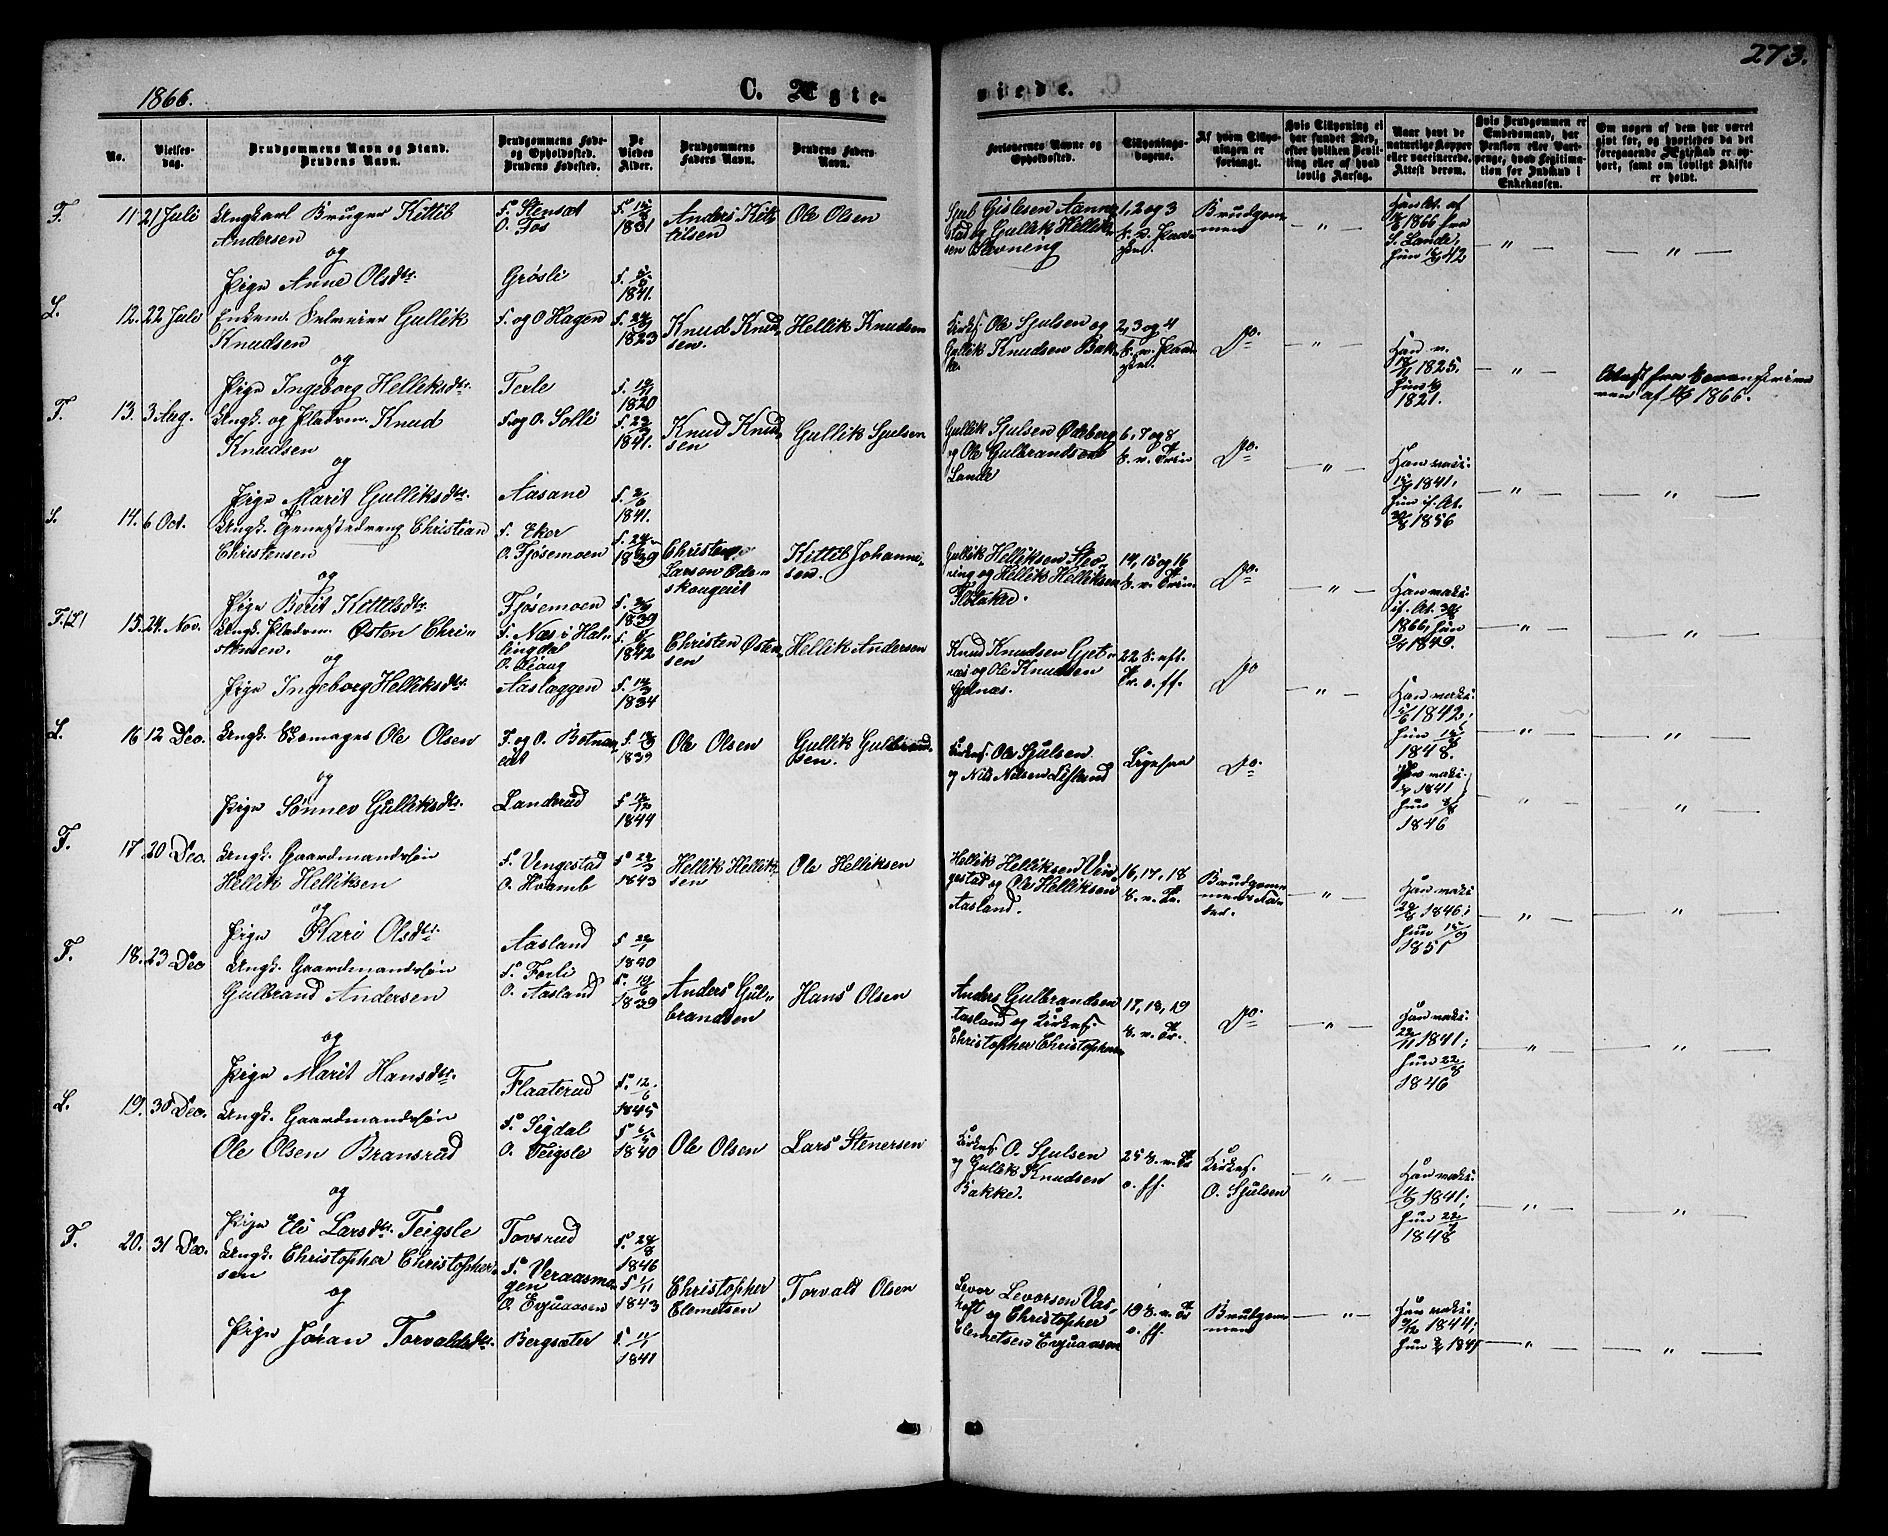 273.
1866.
C. Ægte-
viede.
No.
Vielses-
dag.
Brudgommens Navn og Stand.
Brudens Navn.
Brudgommens Føde-
og Opholdssted.
Brudens Fødested.
De
Viedes
Alder.
Brudgommens
Faders Navn.
Brudens Faders
Navn.
Forlovernes Navne og
Opholdssted.
Tillysnings-
dagene.
Af hvem Tillys-
ningen er
forlangt.
Hvis Tillysning ei
har fundet Sted,
efter hvilken Bevil-
ling eller af hvad
lovlig Aarsag.
Naar havt de
naturlige Kopper
eller vaccinerede.
Attest derom.
Hvis Brudgommen er
Embedsmand, har
Pension eller Vart-
penge, hvad Legitima-
tion for Indskud i
Enkekassen.
Om nogen af dem har været
gift før, og hvorledes da det
foregaaende Ægteskab er op-
hørt, samt om lovligt Skifte
er holdt.
F. 11. 21 Juli Ungkarl Bruger Kittil
Andersen
og
Pige Anne Olsdtr.
F. Stensæt
O. Fos
Grøsli
1831
1841.
Anders Kit-
tilsen
Ole Olsen
Sjul Gislesen Aanne-
stad og Gullik Hellik-
sen Slevning
1, 2 og 3
Brudgom-
men
1866 fra
S. Lande,
hun 42
L. 12. 22 Juli Enkem. Selveier Gullik
Knudsen
og
Pige Ingeborg Helliksdtr.
F. og O Hagen
Terle
1823
1820
Knud Knud-
sen.
Hellik Knudsen
Kirkes. Ole Sjulsen og
Gullik Knudsen Bak-
ke
2, 3 og 4
Do.
Han v.
1825,
1821.
af 1866.
F. 13. 3 Aug. Ungk. og Pladsm. Knud
Knudsen
og
Pige Marit Gulliksdtr.
F. og O. Solli
Aasane
1841.
1841.
Knud Knud-
sen
Gullik Sjulsen
Gullik Sjulsen Ødeberg
og Ole Gulbrandsen
Lande
6, 7 og 8
Do.
Han vaks.
1841,
hun if. At.
1856
L. 14. 6 Oct. Christian
Christensen
og
Pige Berit Kittelsdtr.
F. Eker
O. Fjøsemoen
Fjøsemoen
1839
1839
Christen
Larsen Øde-
skougeiet
Kittil Johanne-
sen.
Gullik Helliksen Slev-
ning og Hellik Helliksen
14, 15 og 16
Do.
Han vaks.
if. At.
1866, hun
1849.
F. (L) 15. 24. Nov. Ungk. Pladsm. Østen Chri-
stensen.
og
Pige Ingeborg Helliksdtr.
F. Næs i Hal-
lingdal
Aaslæggen
1842
1834
Christen Østen-
sen
Hellik Andersen
Knud Knudsen Gjet-
næs og Ole Knudsen
Gjelnæs.
22 S. eft.
Tr. o. ff.
Do
Han vaks.
1842;
hun
1848.
L. 16 12 Dec. Ungk. Skomager Ole Olsen
og
Pige Sønnev Gulliksdtr.
F. og O. Botnen-
eiet
Landerud
1839
1844
Ole Olsen
Gullik Gulbrand-
sen.
Kirkes. Ole Sjulsen
og Nils Nilsen
Do.
Han vaks.
1841
hun
1846
F. 17. 20 Dec. Ungk. Gaardmandssøn
Hellik Helliksen
og
Pige Kari Olsdtr.
F. Vengestad
O. Kvamb
Aasland
1843
1840
Hellik Hellik-
sen
Ole Helliksen
Hellik Helliksen Ven-
gestad og Ole Helliksen
Aasland.
16, 17, 18
S. v. Tr.
Brudgom-
mens Fa-
der.
Han vaks.
1846;
hun
1851
F. 18. 23 Dec Ungk. Gaardmandssøn
Gulbrand Andersen
og
Pige Marit Hansdtr.
F. Forli
O. Aasland
Flaaterud
1839
1845
Anders Gul-
brandsen
Hans Olsen
Anders Gulbrandsen
Aasland og Kirkes.
Christopher Christophers.
17, 18, 19
S. v. Tr.
Do.
Han vaks.
1841;
hun
1846
L. 19. 30 Dec. Ungk. Gaardmandssøn
Ole Olsen Bransrud
og
Pige Eli Larsdtr. Teigsle
F. Sigdal
O. Teigsle
Tovsrud
1840
1846
Ole Olsen
Lars Stenersen
Kirkes. O. Sjulsen
og Gullik Knudsen
Bakke.
25 S. v. Tr
o. ff.
Kirkes.
O. Sjulsen
Han vaks.
1841;
hun
1848
F. 20. 31 Dec. Ungk. Christopher Christopher-
sen
og
Pige Jøran Torvaldsdtr.
F. Veraasmo-
gen
O. Erjuaasen
Bergsæter
1843
1841
Christopher
Clemetsen
Torvald Olsen
Levor Levorsen Vas-
tøft og Christopher
Clemetsen Erjuaasen
19 S. v. Tr
o. ff.
Brudgom-
men
Han vaks.
1844;
hun